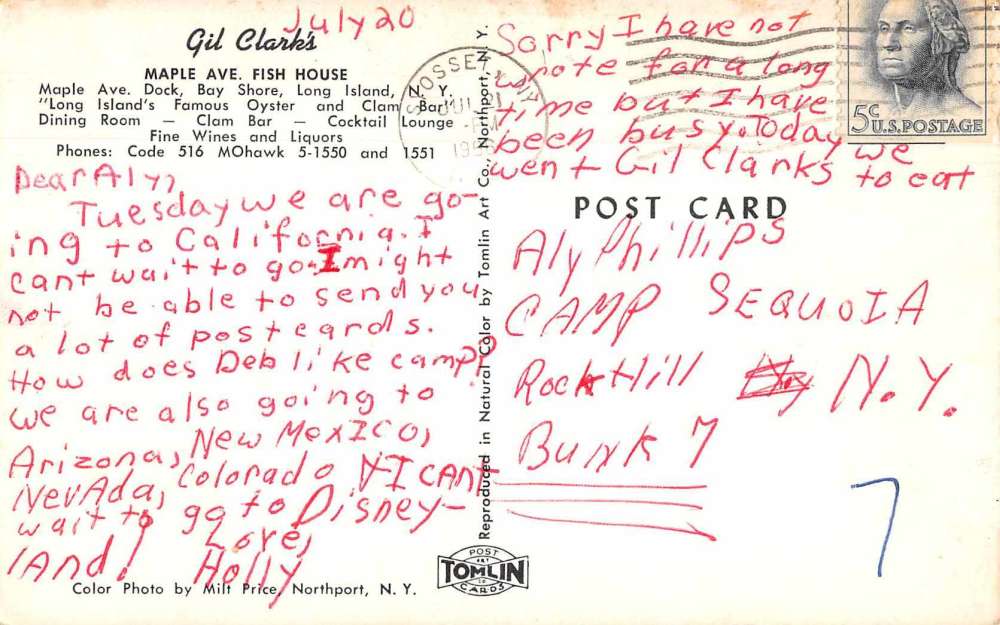 July 20
Gil Clark's
MAPLE AVE. FISH HOUSE
Maple Ave. Dock, Bay Shore, Long Island, N. Y.
"Long Island's Famous Oyster and Clam Bar"
Dining Room — Clam Bar — Cocktail Lounge
Fine Wines and Liquors
Phones: Code 516 MOhawk 5-1550 and 1551
Dear Aly,
Tuesday we are go-
ing to California. I
cant wait to go. I might
not be able to send you
a lot of postcards.
How does Deb like camp?
We are also going to
Arizona, New Mexico,
Nevada, Colorado I cant
wait to go to Disney-
land! Love,
Holly
Color Photo by Milt Price, Northport, N. Y.
Reproduced in Natural Color by Tomlin Art Co., Northport, N. Y.
POST
ART
TOMLIN
CARDS
SYOSSET N.Y.
JUL 21
PM
Sorry I have not
wrote for a long
time but I have
been busy. Today we
went Gil Clarks to eat
5c U.S. POSTAGE
POST CARD
Aly Phillips
CAMP SEQUOIA
Rock Hill N.Y.
Bunk 7
7